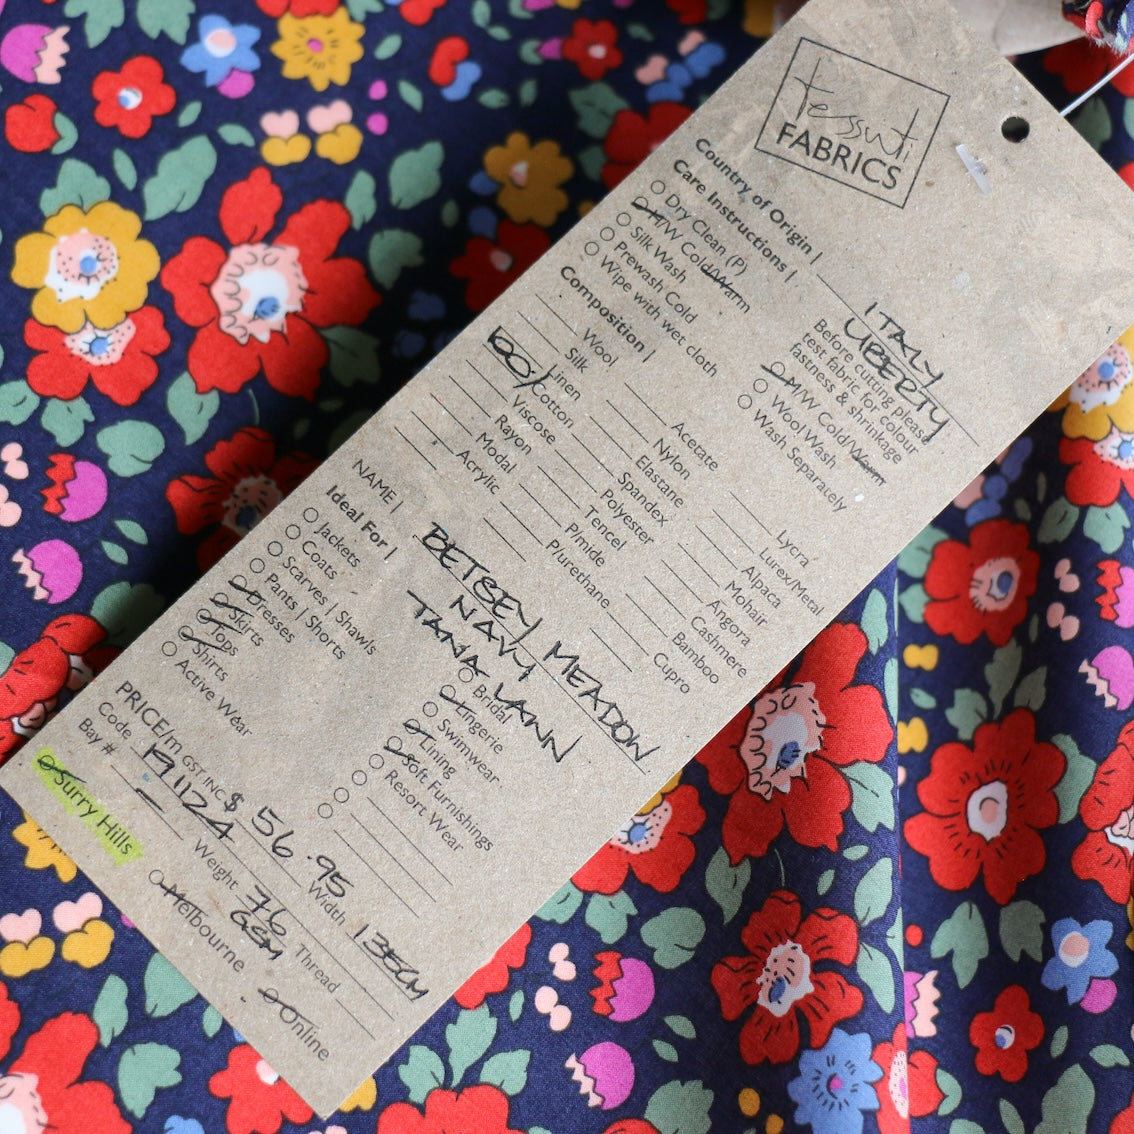 Tessuti
FABRICS
Country of Origin | ITALY
LIBERTY
Care Instructions |
Dry Clean (P)
M/W Cold/Warm
Silk Wash
Prewash Cold
Wipe with wet cloth
Before cutting please
test fabric for colour
fastness & shrinkage
M/W Cold/Warm
Wool Wash
Wash Separately
Composition |
Wool
Silk
Linen
100% Cotton
Viscose
Rayon
Modal
Acrylic
Acetate
Nylon
Elastane
Spandex
Polyester
Tencel
P/mide
P/urethane
Lycra
Lurex/Metal
Alpaca
Mohair
Angora
Cashmere
Bamboo
Cupro
NAME | BETSEY MEADOW
NAVY
TANA LAWN
Ideal For |
Jackets
Coats
Scarves | Shawls
Pants | Shorts
Dresses
Skirts
Tops
Shirts
Active Wear
Bridal
Lingerie
Swimwear
Lining
Soft Furnishings
Resort Wear
PRICE/m GST INC $ 56.95
Width 135CM
Code
Weight 76
GSM
Bay #
Thread
Surry Hills
Melbourne
Online